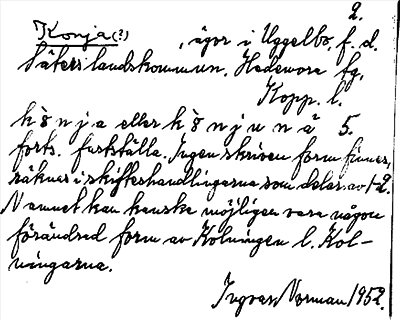 2.
Konja(?), ägor i Uggelbo, f. d.
Säters landskommun, Hedemora fg,
Kopp. l.
kȯ̀nja eller kȯ̀njuna 5.
forts. fastställa. Ingen skriven form finnes,
räknes i skifteshandlingarna som delar av 1-2.
Namnet kan kanske möjligen vara någon
förändrad form av Kolningen l. Kol-
ningarna.
Ingvar Norman 1952.